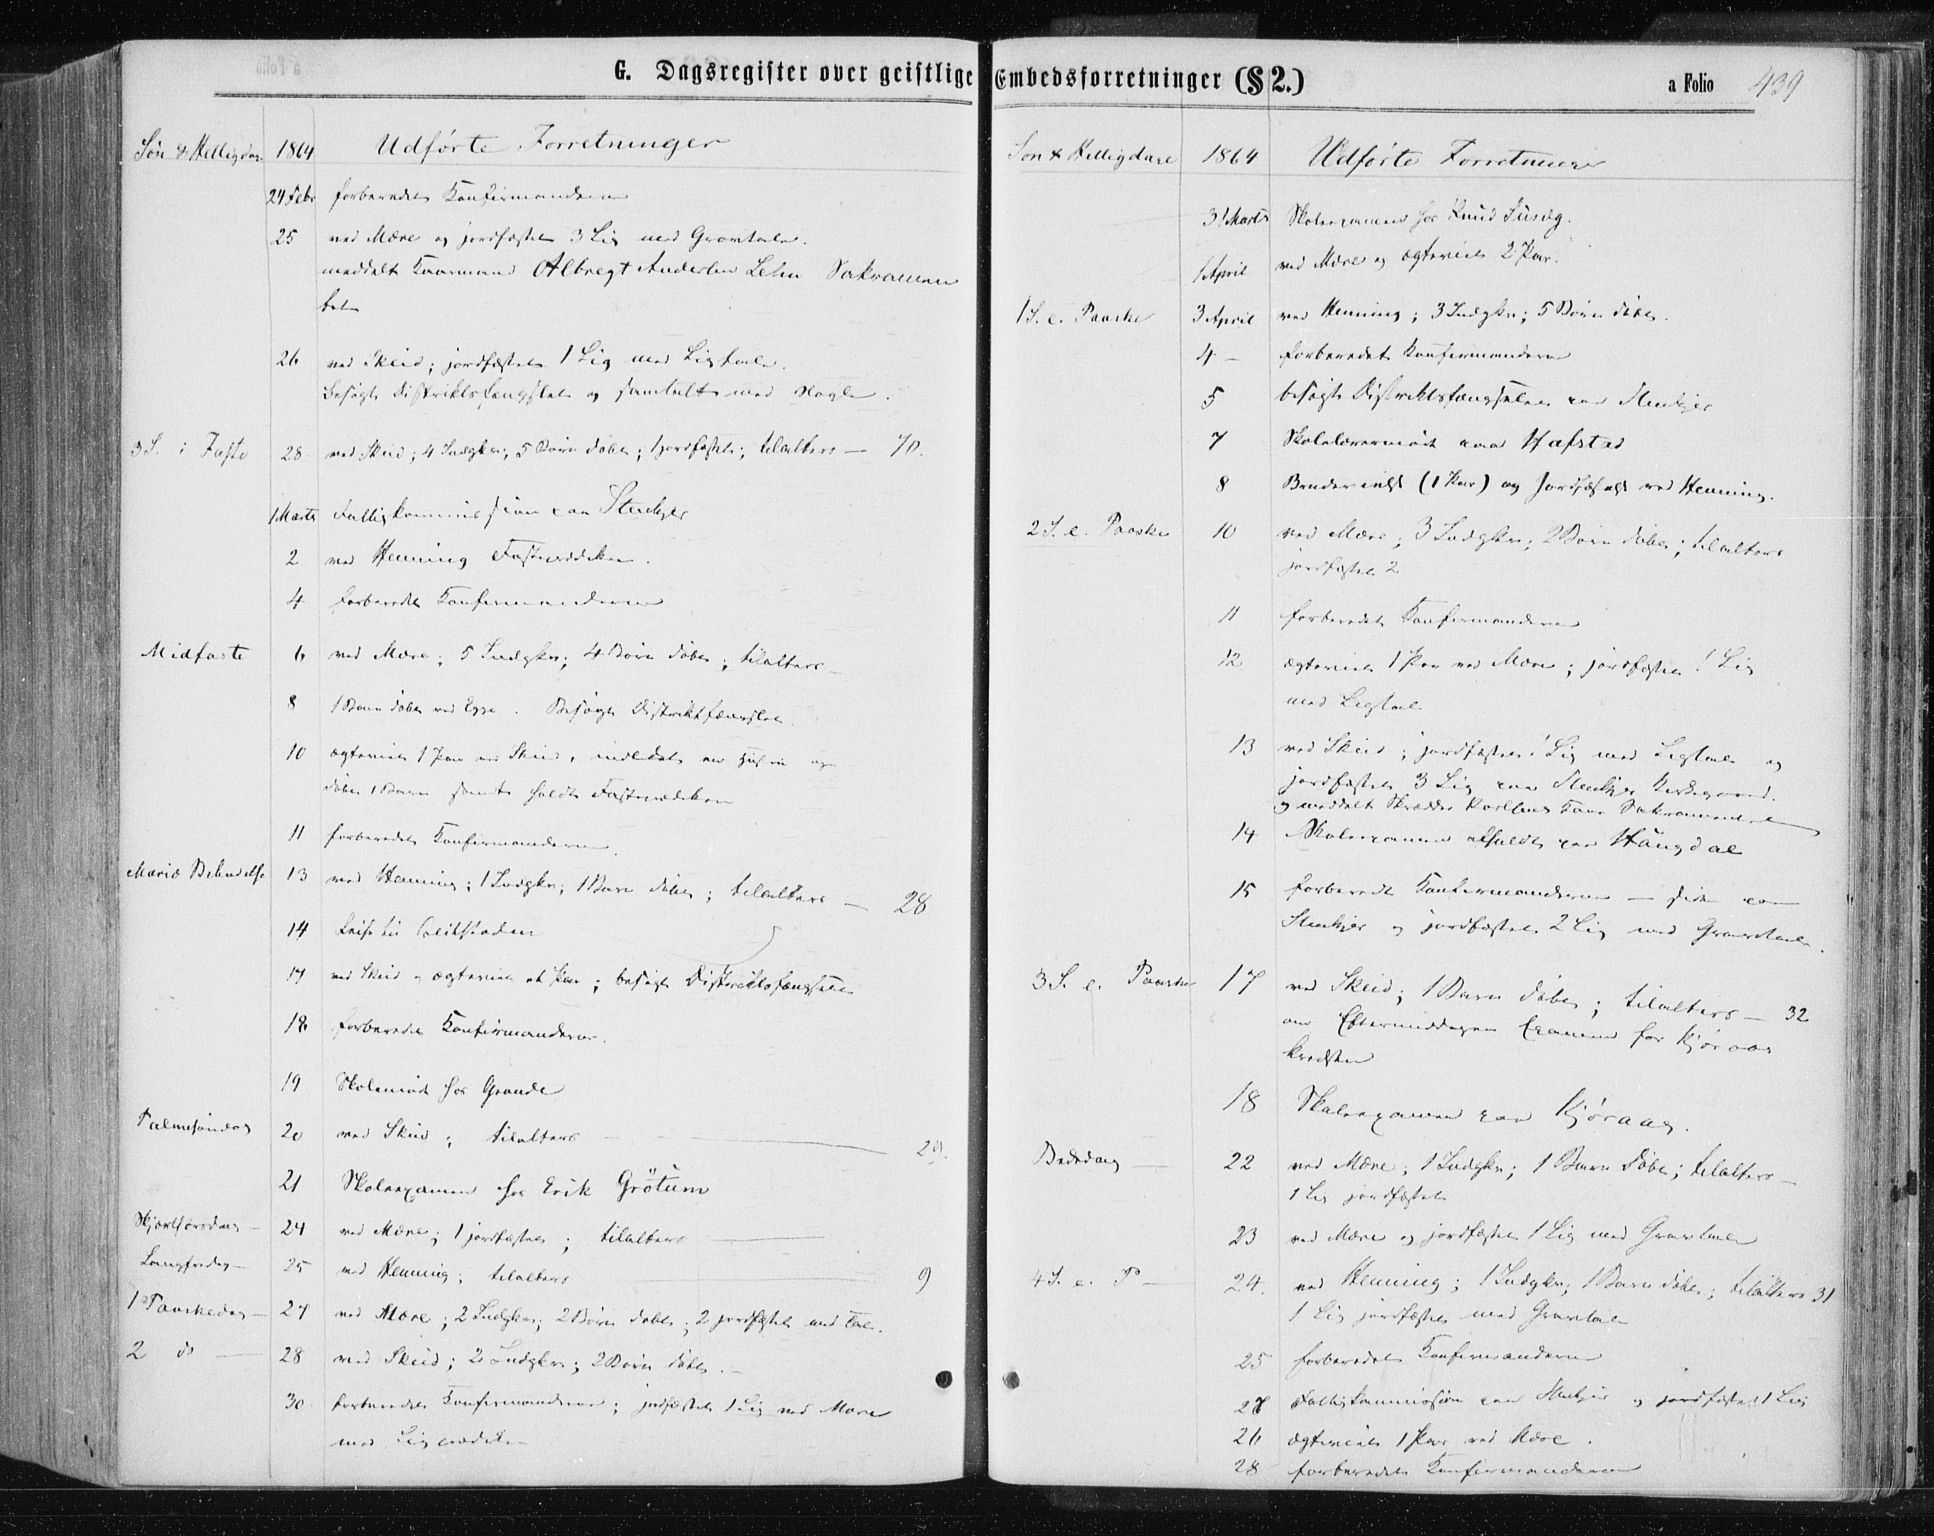 G. Dagsregister over geistlige Embedsforretninger (§ 2.) a Folio 439
Søn & Helligdage 1864 Udførte Forretninger
24 Febr forberedet Konfirmanderne
25 ved Mære og jordfæstet 3 Lig med Gravtale.
meddelt Kaarmand Albregt Andersen Lein Sakramen
tet
26 ved Skeid; jordfæstet 1 Lig med Ligtale.
Besøgt Distriktsfængslet og samtalt med Nogle.
3 S. i Faste 28 ved Skeid; 4 Indgkr; 5 Børn døbte; 1 jordfæstet; tilalters — 70.
1 Marts Fattigkommission paa Stenkjer
2 ved Henning Fasteprædiken.
4 forberedet Konfirmanderne
Midfaste 6 ved Mære; 5 Indgkr; 4 Børn døbte; tilalters —
8 1 Barn døbt ved Egge. Besøgt Distriktsfængslet.
10 ægteviet 1 Par ved Skeid, indledet en Hustru og
døbt 1 Barn samt holdt Fasteprædiken
11 forberedet Konfirmanderne.
Mariæ Bebudelse 13 ved Henning; 1 Indgkr; 1 Barn døbt; tilalters — 28
14 Reise til
17 ved Skeid og ægteviet et Par; besøgt Distriktsfængslet
18 forberedet Konfirmanderne.
19 Skolemøde hos Grande
Palmesøndag 20 ved Skeid; tilalters — 29.
21 Skoleexamen hos Erik Grötum
Skjærthorsdag — 24 ved Mære; 1 jordfæstet; tilalters —
Langfredag — 25 ved Henning; tilalters 9
1 Paaskedag — 27 ved Mære; 2 Indgkr; 2 Børn døbte; 2 jordfæstet med Tale.
2 do — 28 ved Skeid; 2 Indgkr; 2 Børn døbte. —
30 forberedet Konfirmanderne; jordfæstet 1 Lig ved Mære
med Ligprædiken
Søn & Helligdage 1864 Udførte Forretninger
31 Marts Skoleexamen hos Knud Susæg.
1 April ved Mære og ægteviet 2 Par.
1 S. e. Paaske 3 April ved Henning; 3 Indgkr; 5 Børn døbte.
4 — forberedet Konfirmanderne
5 besøgt Distriktsfængslet paa Stenkjer
7 Skolelærermøde paa Hafstad
8 Brudevielse (1 Par) og Jordfæstelse ved Henning.
2 S. e. Paaske 10 ved Mære; 3 Indgkr; 2 Børn døbte; tilalters
jordfæstet 2
11 forberedet Konfirmanderne
12 ægteviet 1 Par ved Mære; jordfæstet 1 Lig
med Ligtale
13 ved Skeid; jordfæstet 1 Lig med Ligtale og
jordfæstet 3 Lig paa Stenkjer Kirkegaard.
og meddelt Skrædder Sakramentet
14 Skoleexamen afholdt paa Haugdal
15 forberedt Konfirmanderne — siden paa
Stenkjer og jordfæstet 2 Lig med Gravtale.
3 S. e. Paaske 17 ved Skeid; 1 Barn døbt; tilalters — 32
om Eftermiddagen Examen for Kjøraas
kredsen
18 Skoleexamen paa Kjøraas.
Bededag — 22 ved Mære; 1 Indgkr; 1 Barn døbt; tilalters —
1 Lig jordfæstet
23 ved Mære og jordfæstet 1 Lig med Gravtale
4 S. e. P — 24. ved Henning; 1 Indgkr; 1 Barn døbt; tilalters 31
1 Lig jordfæstet med Gravtale
25 forberedet Konfirmanderne
27 Fattigkommission paa Stenkjer og jordfæstet 1 Lig
26 ægteviet 1 Par ved Mære.
28 forberedet Konfirmanderne